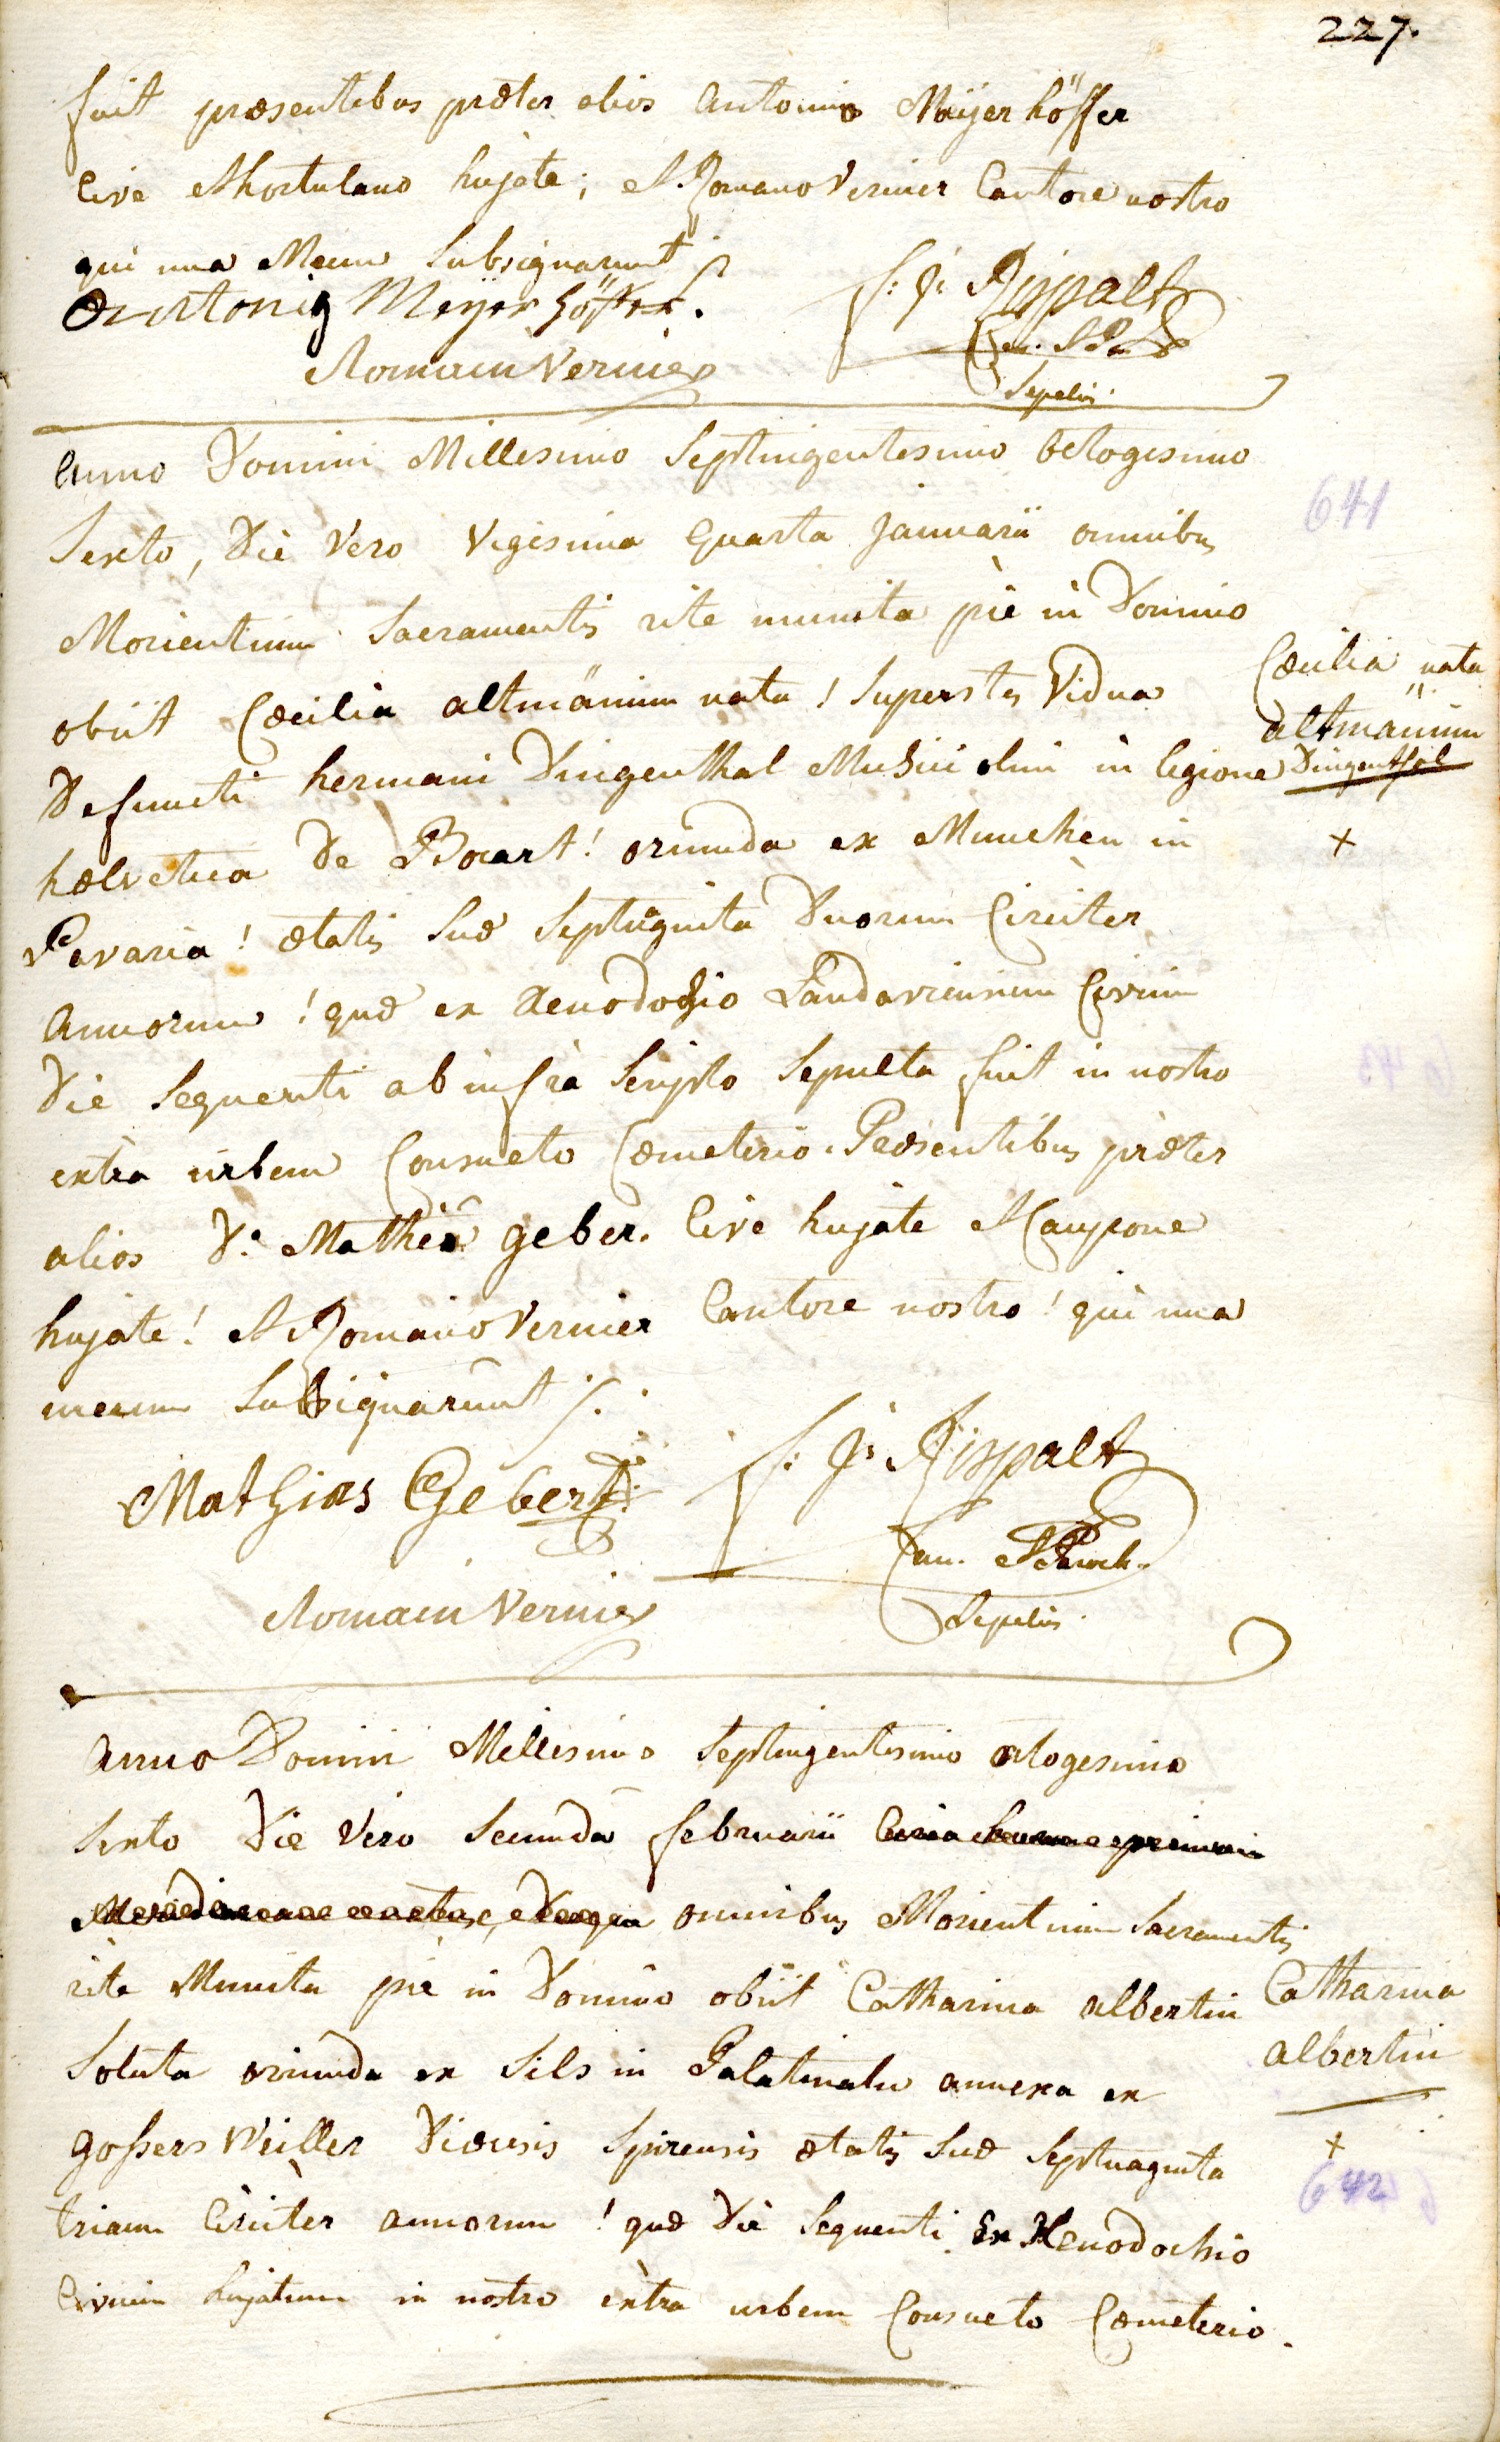 227.
fuit præsentibus præter alios Antonio Maÿerhöffer
Cive et hortulano hujate; et Romano Vernier Cantore nostro
qui una Mecum Subsignarunt
Antonig Meÿerhöffer.
f: J: Rispalt
Can. et Par
Romain Vernier
Sepelii.
Anno Domini Millesimo Septingentesimo octogesimo
641
Sexto, Die Vero Vigesima Quarta Januarii omnibus
Morientium Sacramentis rite munita piè in Domino
obiit Cæcilia altmännin nata! Superstes Vidua
Cæcilia nata
altmännin
Defuncti hermani Dingenthal Musici olim in legione
Dingenthal
hælvetica De Bocart! oriunda ex Munchen in
+
Pavaria! ætatis Suæ Septuaginta Duorum Circiter
Annorum! quæ ex Xenodochio Landaviensium Civium
Die Sequenti ab infra Scripto Sepulta fuit in nostro
extra urbem Consueto Cæmeterio. Præsentibus præter
alios D: Mathia geber. Cive hujate et Caupone
hujate! et Romano Vernier Cantore nostro! qui una
mecum Subsignarunt ./.
Mathias Gebert
f: J: Rispalt
Can. et Paroch.
Romain Vernier
Sepelii
Anno Domini Millesimo Septingentesimo octogesimo
Sexto Die Vero Secunda februarii
omnibus Morientium Sacramentis
rite Munita piè in Domino obiit Catharina albertin
Catharina
albertin
Soluta oriunda ex Sils in Palatinatu annexa ex
gossersweiller Diœcesis Spirensis ætatis Suæ Septuaginta
+
642
trium Circiter annorum! quæ Die Sequenti Ex Xenodochio
Civium hujatum in nostro extra urbem Consueto Cæmeterio.